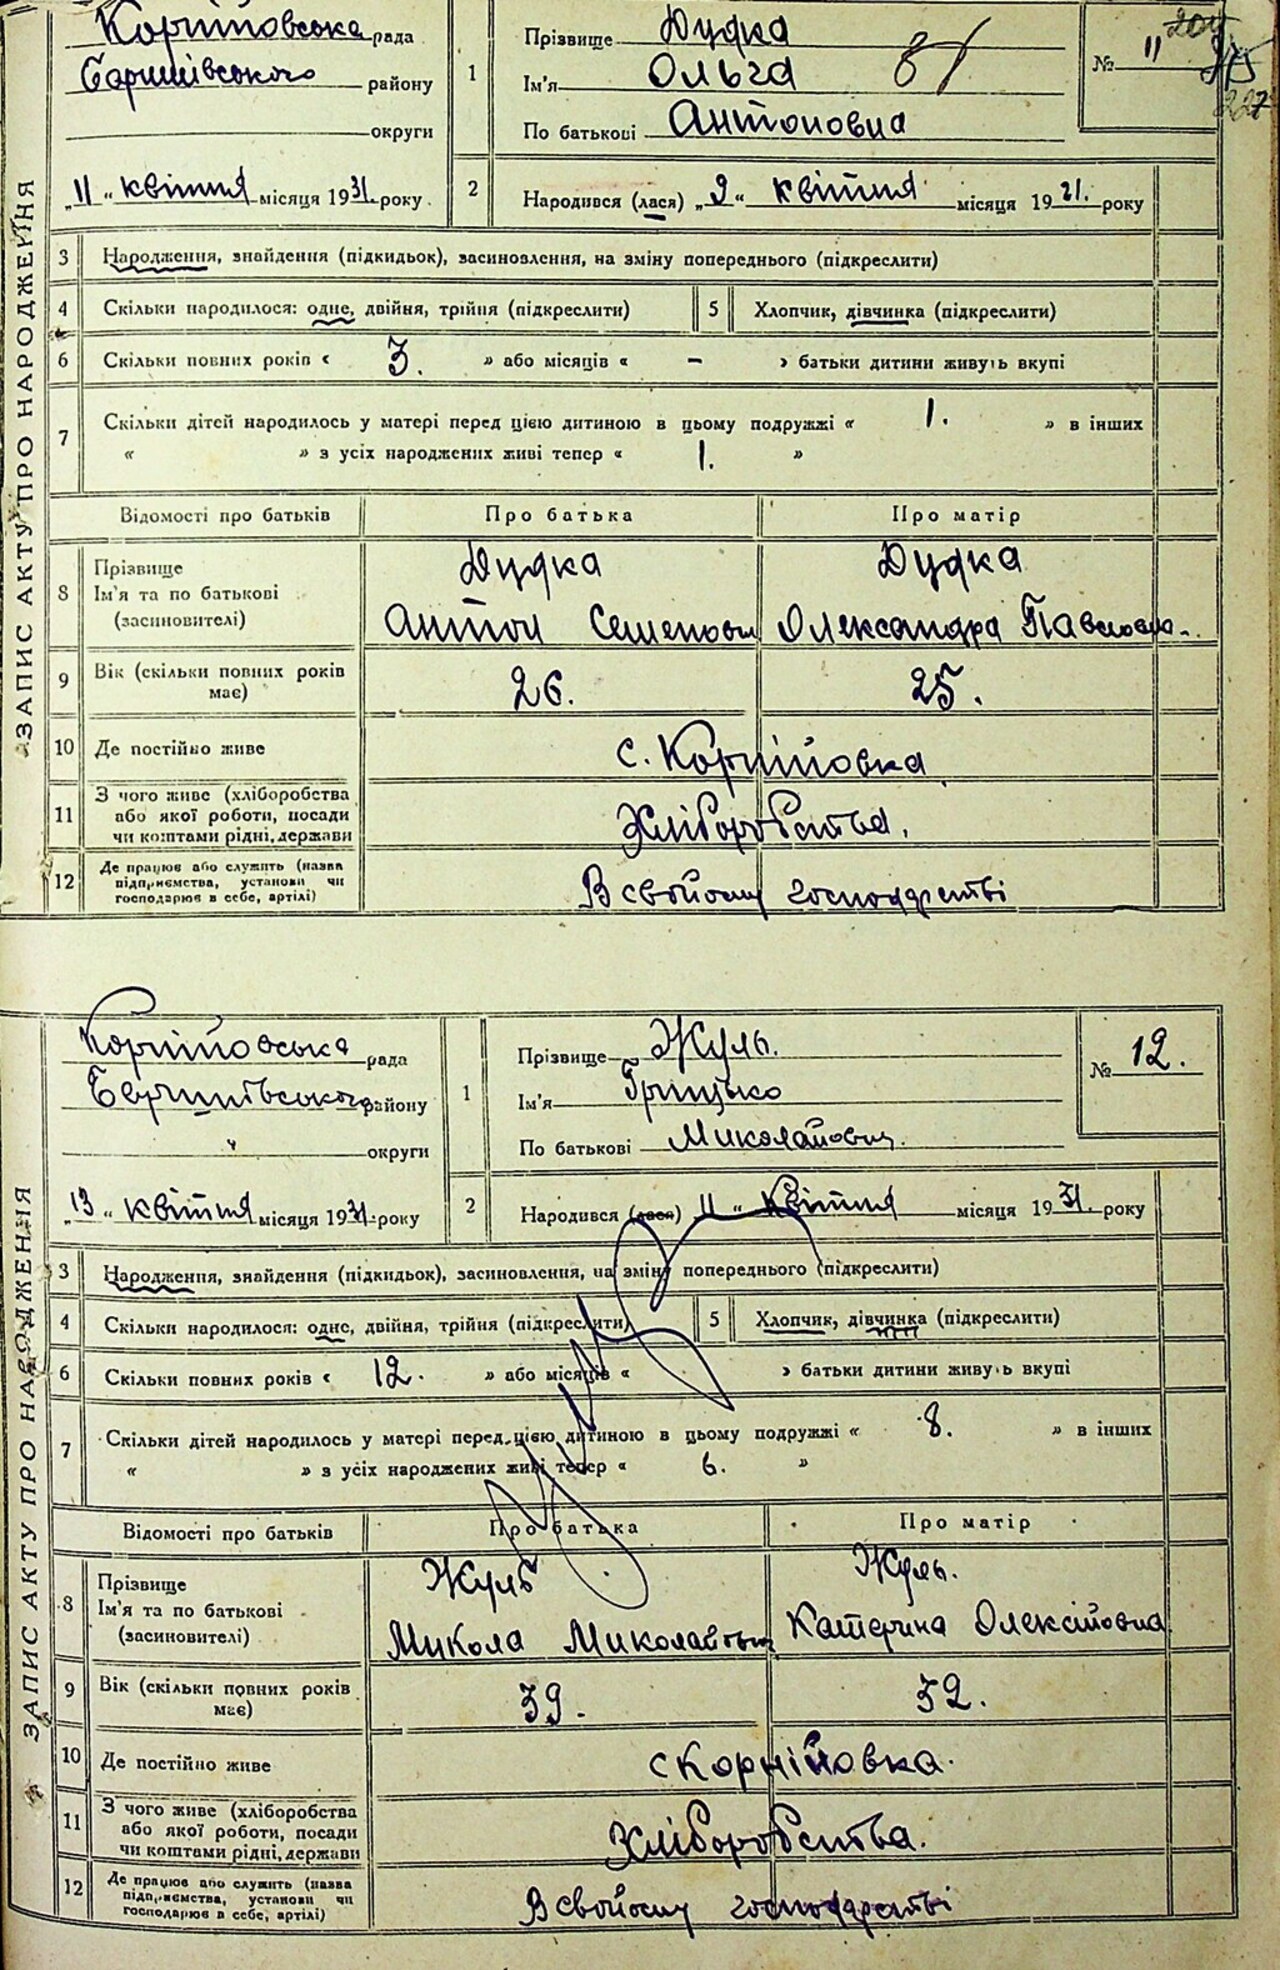 Корнійовська рада
Баришівського району
округи
„11“ квітня місяця 1931 року
1
Прізвище Дудка
Ім'я Ольга
По батькові Антоновна
№ 11
227
2
Народився (лася) „9“ квітня місяця 1931. року
ЗАПИС АКТУ ПРО НАРОДЖЕННЯ
3 Народження, знайдення (підкидьок), засиновлення, на зміну попереднього (підкреслити)
4 Скільки народилося: одне, двійня, трійня (підкреслити) 5 Хлопчик, дівчинка (підкреслити)
6 Скільки повних років « 3. » або місяців « – » батьки дитини живуть вкупі
7 Скільки дітей народилось у матері перед цією дитиною в цьому подружжі « 1. » в інших
« » з усіх народжених живі тепер « 1. »
Відомості про батьків Про батька Про матір
8 Прізвище Дудка Дудка
Ім'я та по батькові Антон Семенович Олександра Павловна
(засиновителі)
9 Вік (скільки повних років має) 26. 25.
10 Де постійно живе с. Корнійовка
11 З чого живе (хліборобства
або якої роботи, посади
чи коштами рідні, держави Хліборобства.
12 Де працює або служить (назва
підприємства, установи чи
господарює в себе, артілі) В свойому господарстві
Корнійовська рада
Баришівського району
" округи
„13“ квітня місяця 1931 року
1
Прізвище Жуль.
Ім'я Грицько
По батькові Миколайович.
№ 12.
2
Народився (лася) 11 “ квітня місяця 1931. року
ЗАПИС АКТУ ПРО НАРОДЖЕННЯ
3 Народження, знайдення (підкидьок), засиновлення, на зміну попереднього (підкреслити)
4 Скільки народилося: одне, двійня, трійня (підкреслити) 5 Хлопчик, дівчинка (підкреслити)
6 Скільки повних років « 12. » або місяців « » батьки дитини живуть вкупі
7 Скільки дітей народилось у матері перед цією дитиною в цьому подружжі « 8. » в інших
« » з усіх народжених живі тепер « 6. »
Відомості про батьків Про батька Про матір
8 Прізвище Жуль Жуль.
Ім'я та по батькові Микола Миколайович Катерина Олексійовна
(засиновителі)
9 Вік (скільки повних років має) 39. 32.
10 Де постійно живе с Корнійовка.
11 З чого живе (хліборобства
або якої роботи, посади
чи коштами рідні, держави Хліборобства.
12 Де працює або служить (назва
підприємства, установи чи
господарює в себе, артілі) В свойому господарстві